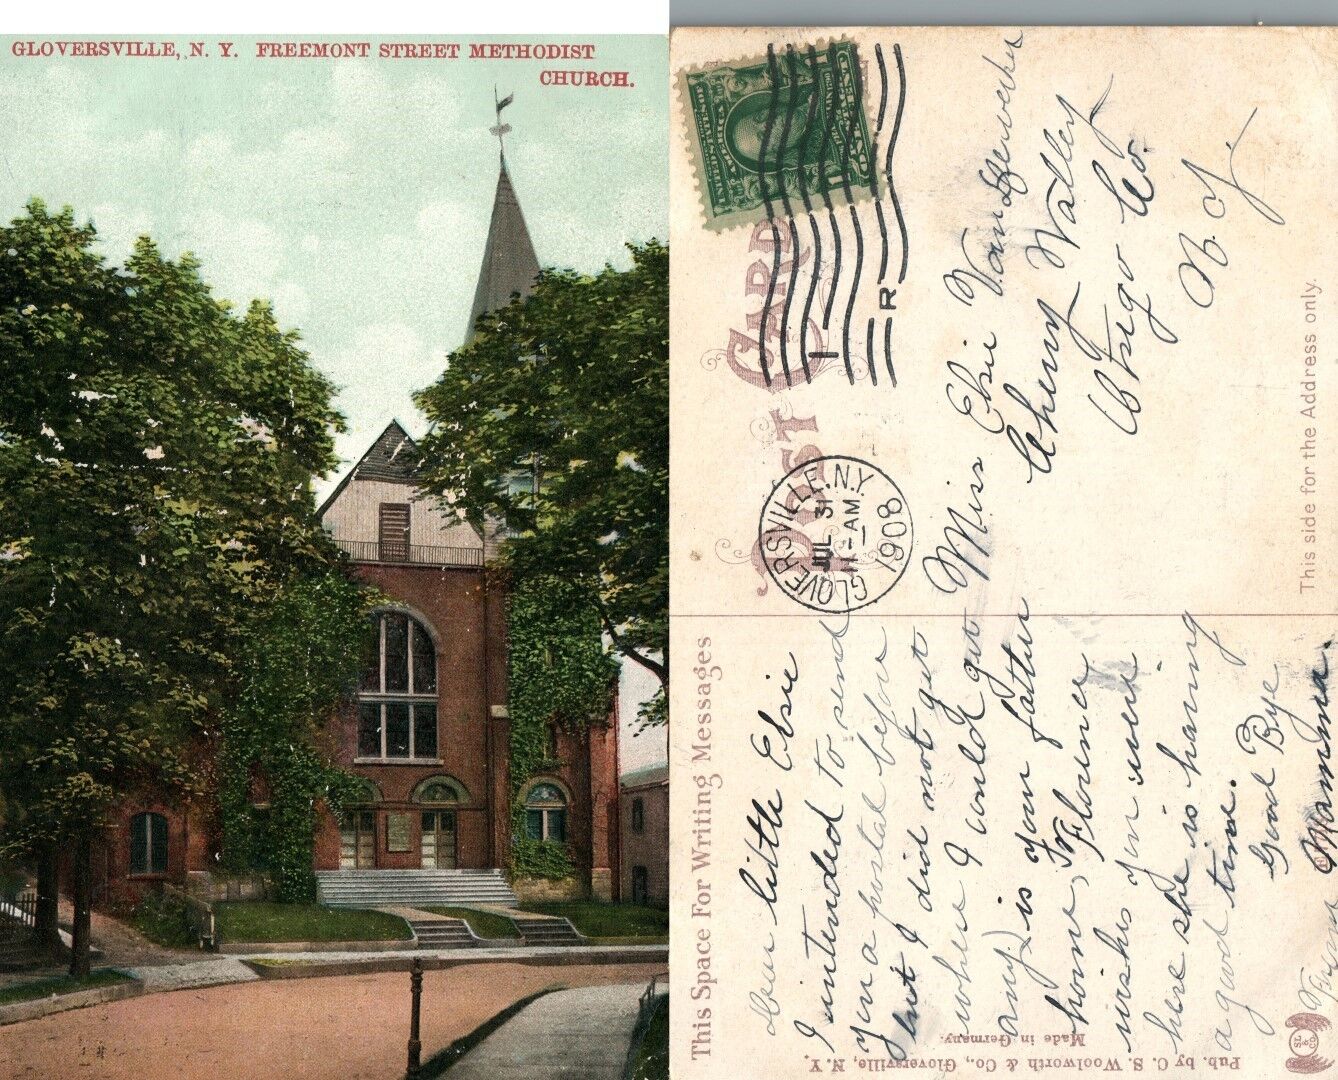 GLOVERSVILLE, N. Y. FREEMONT STREET METHODIST
CHURCH.
POST CARD
GLOVERSVILLE, N.Y.
JUL 31
11-AM
1908
1
R
Miss Elsie Vanderwerker
Cherry Valley
Otsego Co.
N. Y.
This side for the Address only.
This Space For Writing Messages
Dear little Elsie
I intended to send
you a postal before
but I did not get
where I could get
any) is your father
home, Florence
wishes you were
here she is having
a good time.
Good Bye
From Mamma.
Pub. by C. S. Woolworth & Co., Gloversville, N. Y.
Made in Germany.